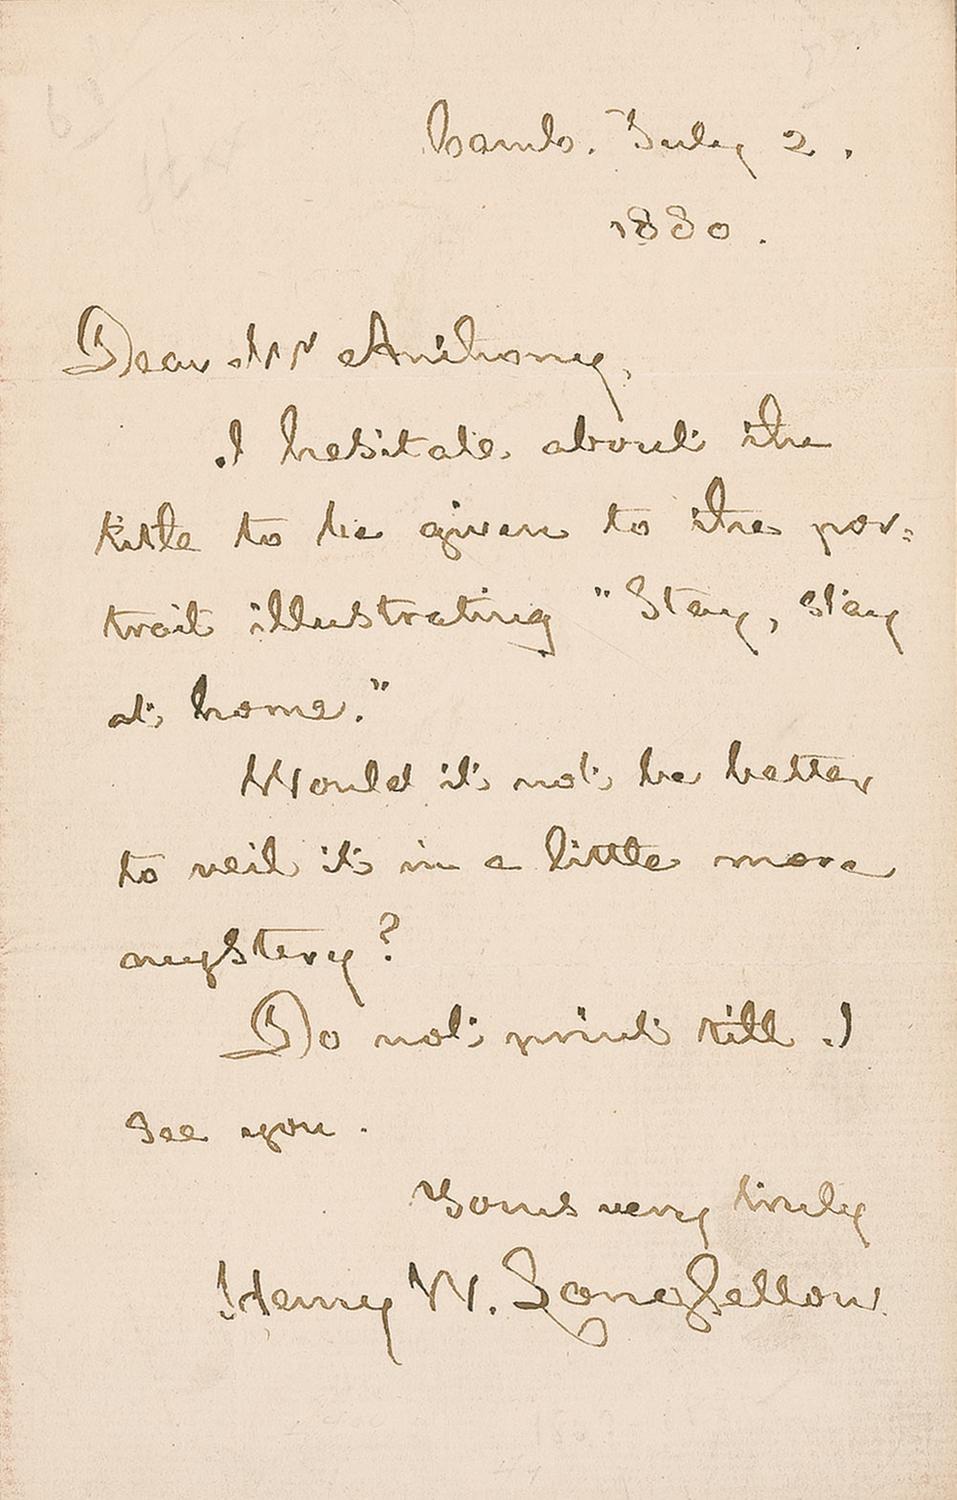 Camb. July 2.
1880.
Dear Mr Anthony,
I hesitate about the
title to be given to the por=
trait illustrating "Stay, stay
at home."
Would it not be better
to veil it in a little more
mystery?
Do not print till I
see you.
Yours very truly
Henry W. Longfellow